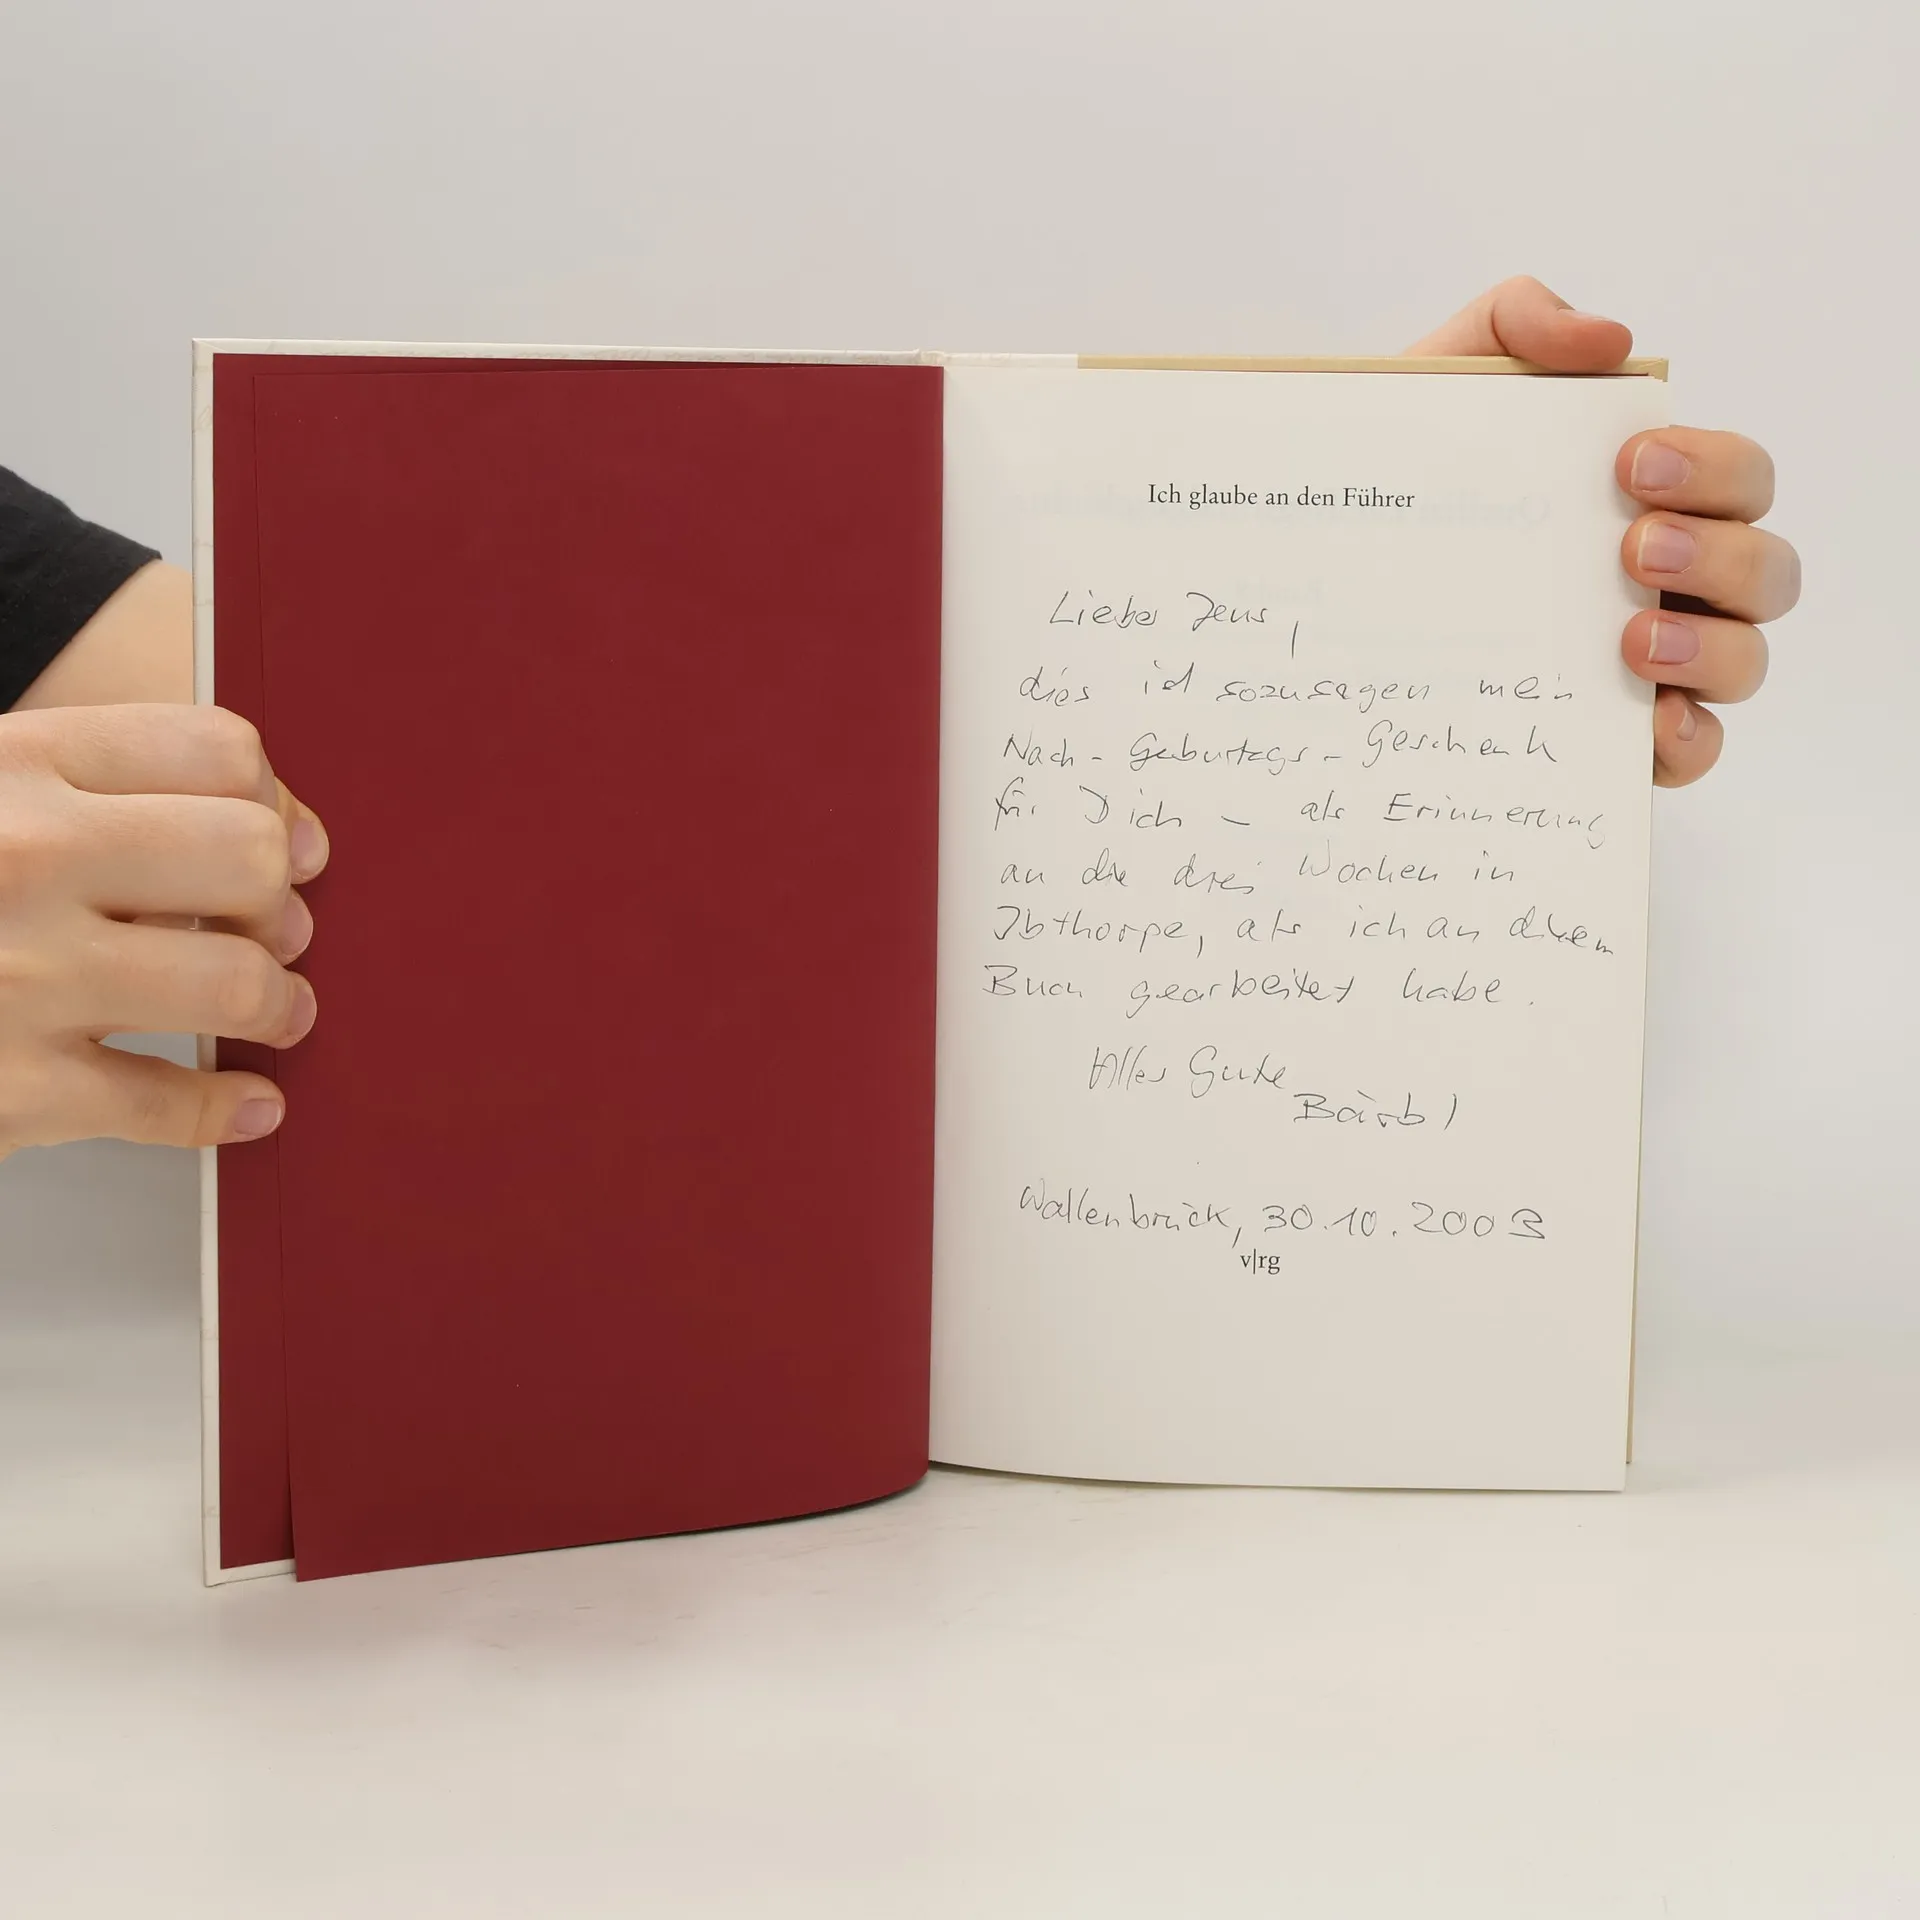 Ich glaube an den Führer
Lieber Jens,
dies ist sozusagen mein
Nach-Geburtags-Geschenk
für Dich - als Erinnerung
an die drei Wochen in
Ibthorpe, als ich an diesem
Buch gearbeitet habe.
Alles Gute
Bärbl
Wallenbrück, 30.10.2003
v|rg